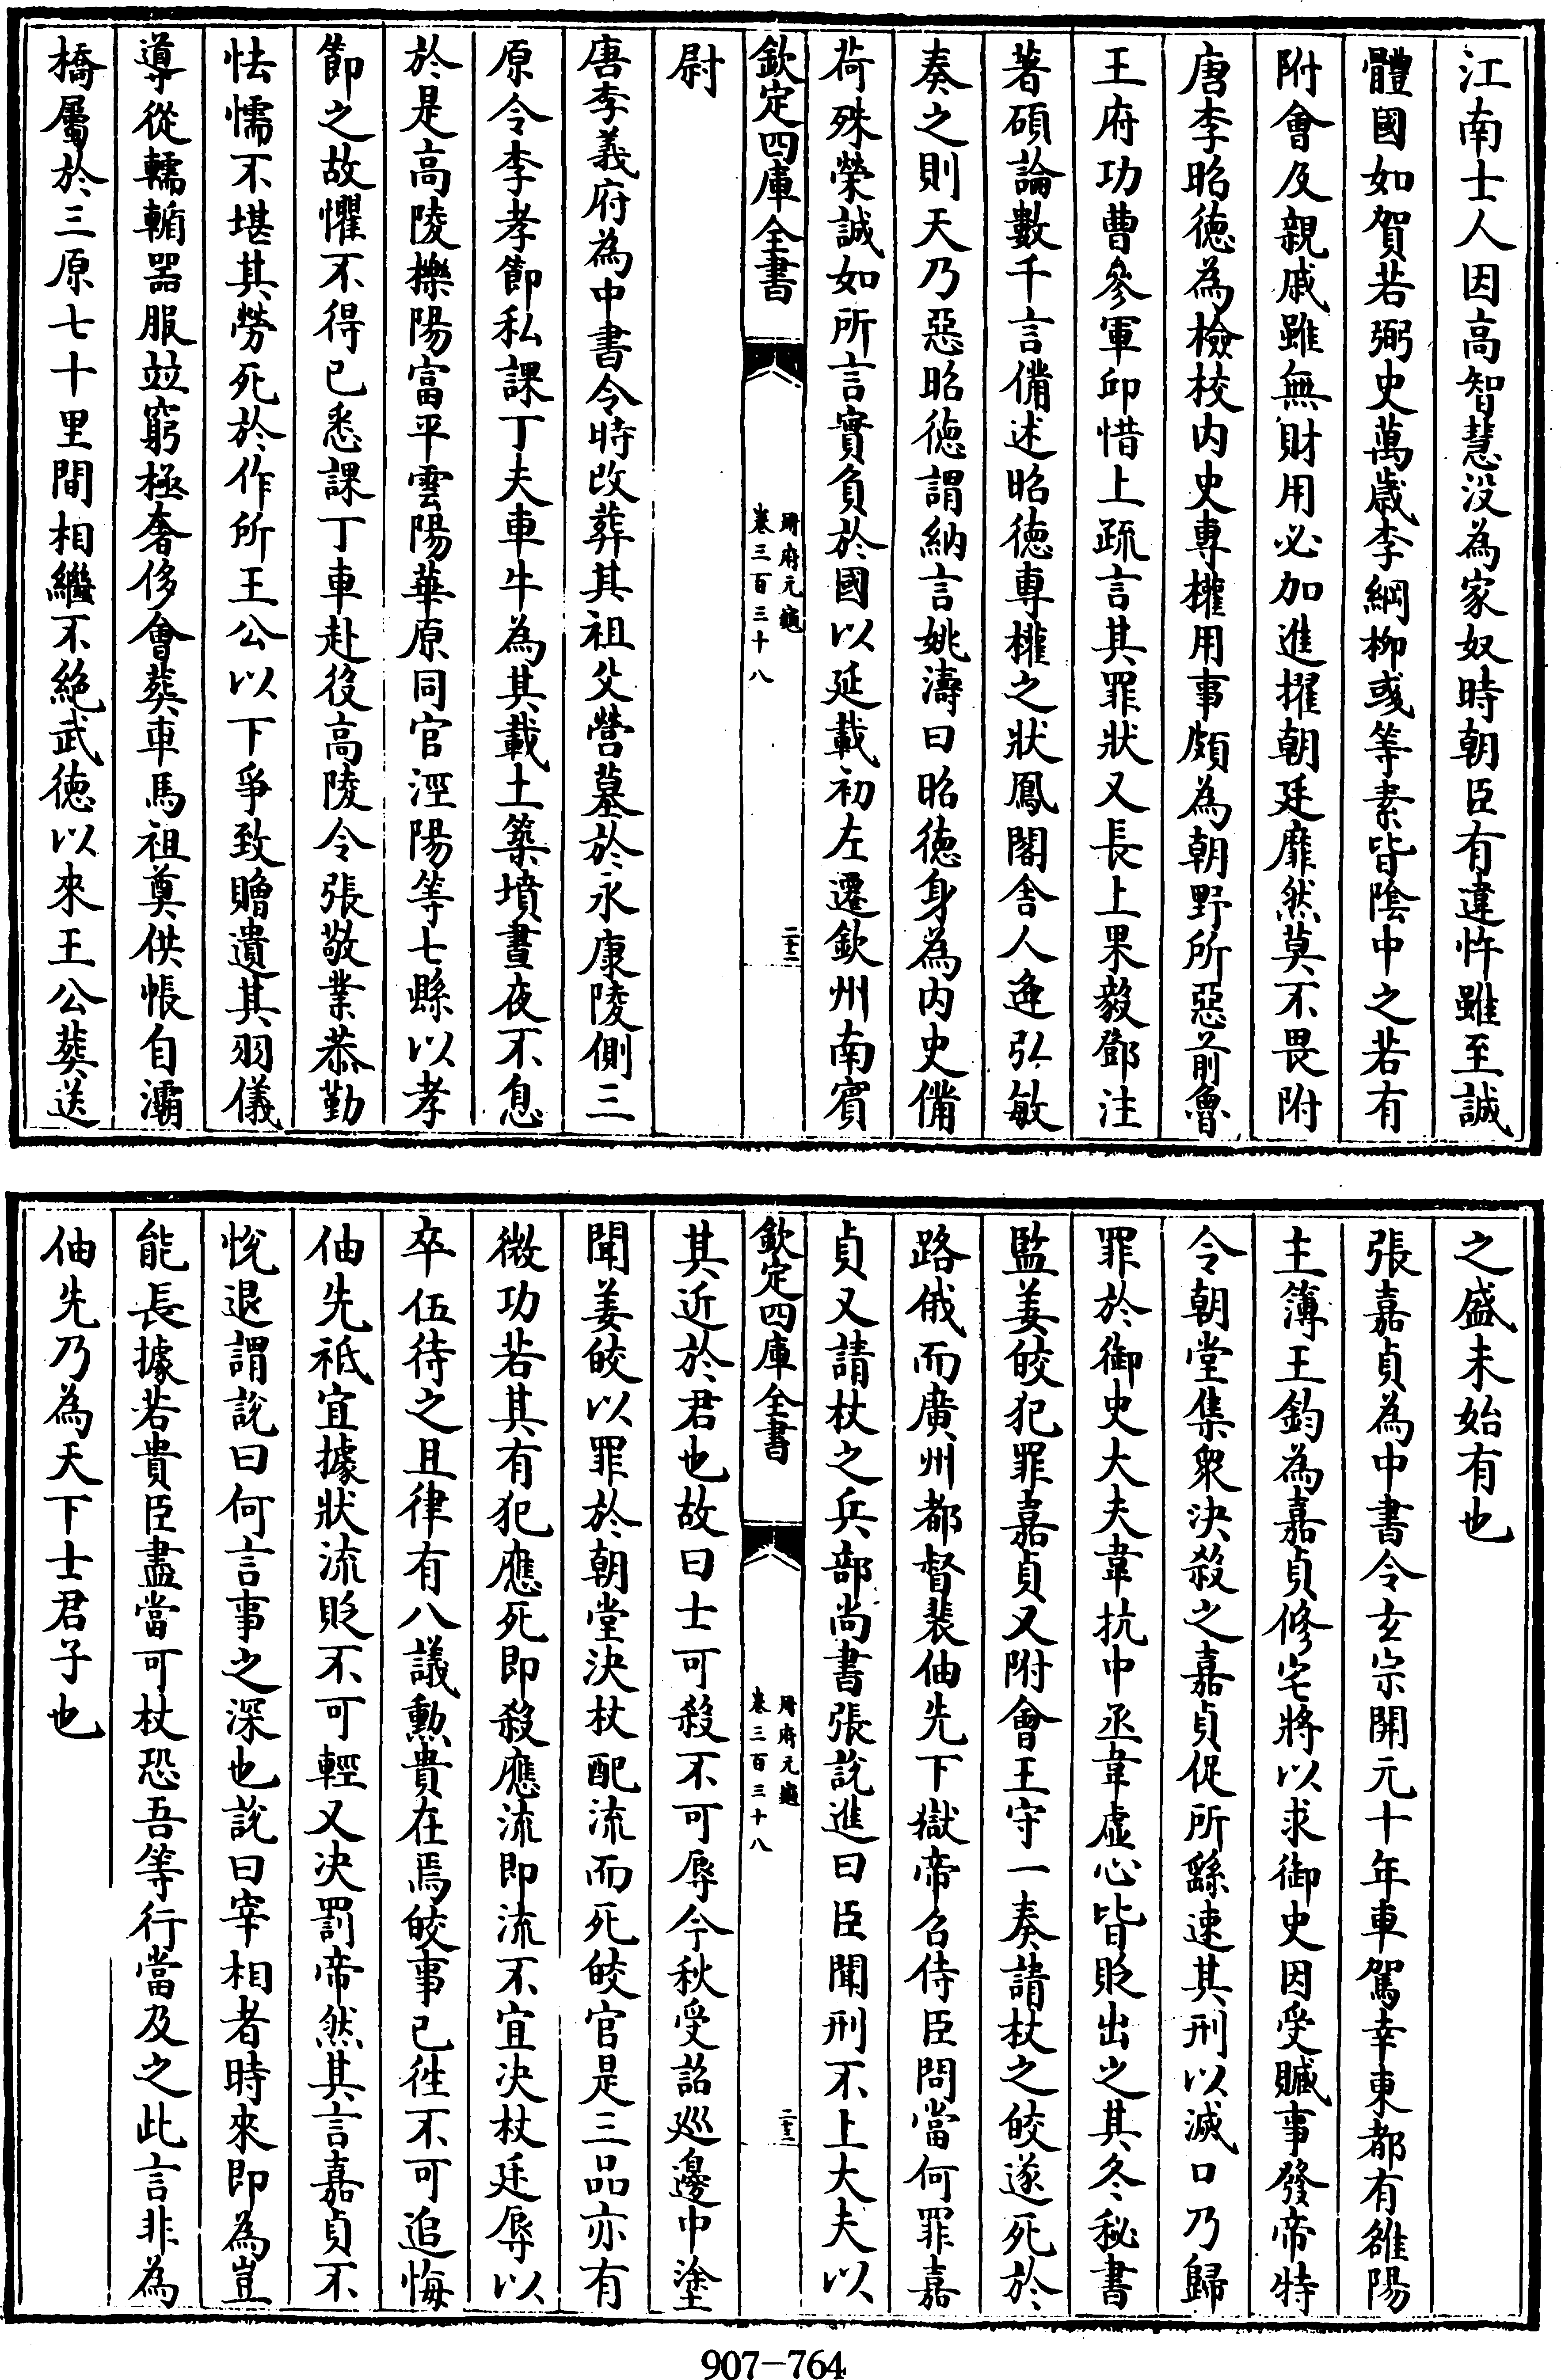 江南士人因高智慧没為家奴時朝臣有違忤雖至誠
體國如賀若弼史萬歲李綱柳彧等素皆陰中之若有
附會及親戚雖無財用必加進擢朝廷靡然莫不畏附
唐李昭徳為檢校内史專權用事頗為朝野所惡前魯
王府功曹參軍邱愔上疏言其罪狀又長上果毅鄧注
著碩論數千言備述昭徳專權之狀鳳閣舍人逄弘敏
奏之則天乃惡昭徳謂納言姚濤曰昭徳身為内史備
荷殊榮誠如所言實負於國以延載初左遷欽州南賓
欽定四庫全書
冊府元龜
卷三百三十八
二十三
尉
唐李義府為中書令時改葬其祖父營墓於永康陵側三
原令李孝節私課丁夫車牛為其載土築墳晝夜不息
於是髙陵櫟陽富平雲陽華原同官涇陽等七縣以孝
節之故懼不得已悉課丁車赴役髙陵令張敬業恭勤
怯懦不堪其勞死於作所王公以下爭致贈遺其羽儀
導從轜輴器服並窮極奢侈會葬車馬祖奠供帳自灞
橋屬於三原七十里間相繼不絶武徳以來王公葬送
之盛未始有也
張嘉貞為中書令玄宗開元十年車駕幸東都有雒陽
主簿王鈞為嘉貞修宅將以求御史因受贓事發帝特
令朝堂集衆決殺之嘉貞促所繇速其刑以滅口乃歸
罪於御史大夫韋抗中丞韋虛心皆貶出之其冬秘書
監姜皎犯罪嘉貞又附會王守一奏請杖之皎遂死於
路俄而廣州都督裴伷先下獄帝召侍臣問當何罪嘉
貞又請杖之兵部尚書張說進曰臣聞刑不上大夫以
欽定四庫全書
冊府元龜
卷三百三十八
二十三
其近於君也故曰士可殺不可辱今秋受詔廵邊中塗
聞姜皎以罪於朝堂決杖配流而死皎官是三品亦有
微功若其有犯應死即殺應流即流不宜決杖廷辱以
卒伍待之且律有八議勲貴在焉皎事已往不可追悔
伷先祗宜據狀流貶不可輕又決罰帝然其言嘉貞不
悅退謂說曰何言事之深也說曰宰相者時來即為豈
能長據若貴臣盡當可杖恐吾等行當及之此言非為
伷先乃為天下士君子也
907-764